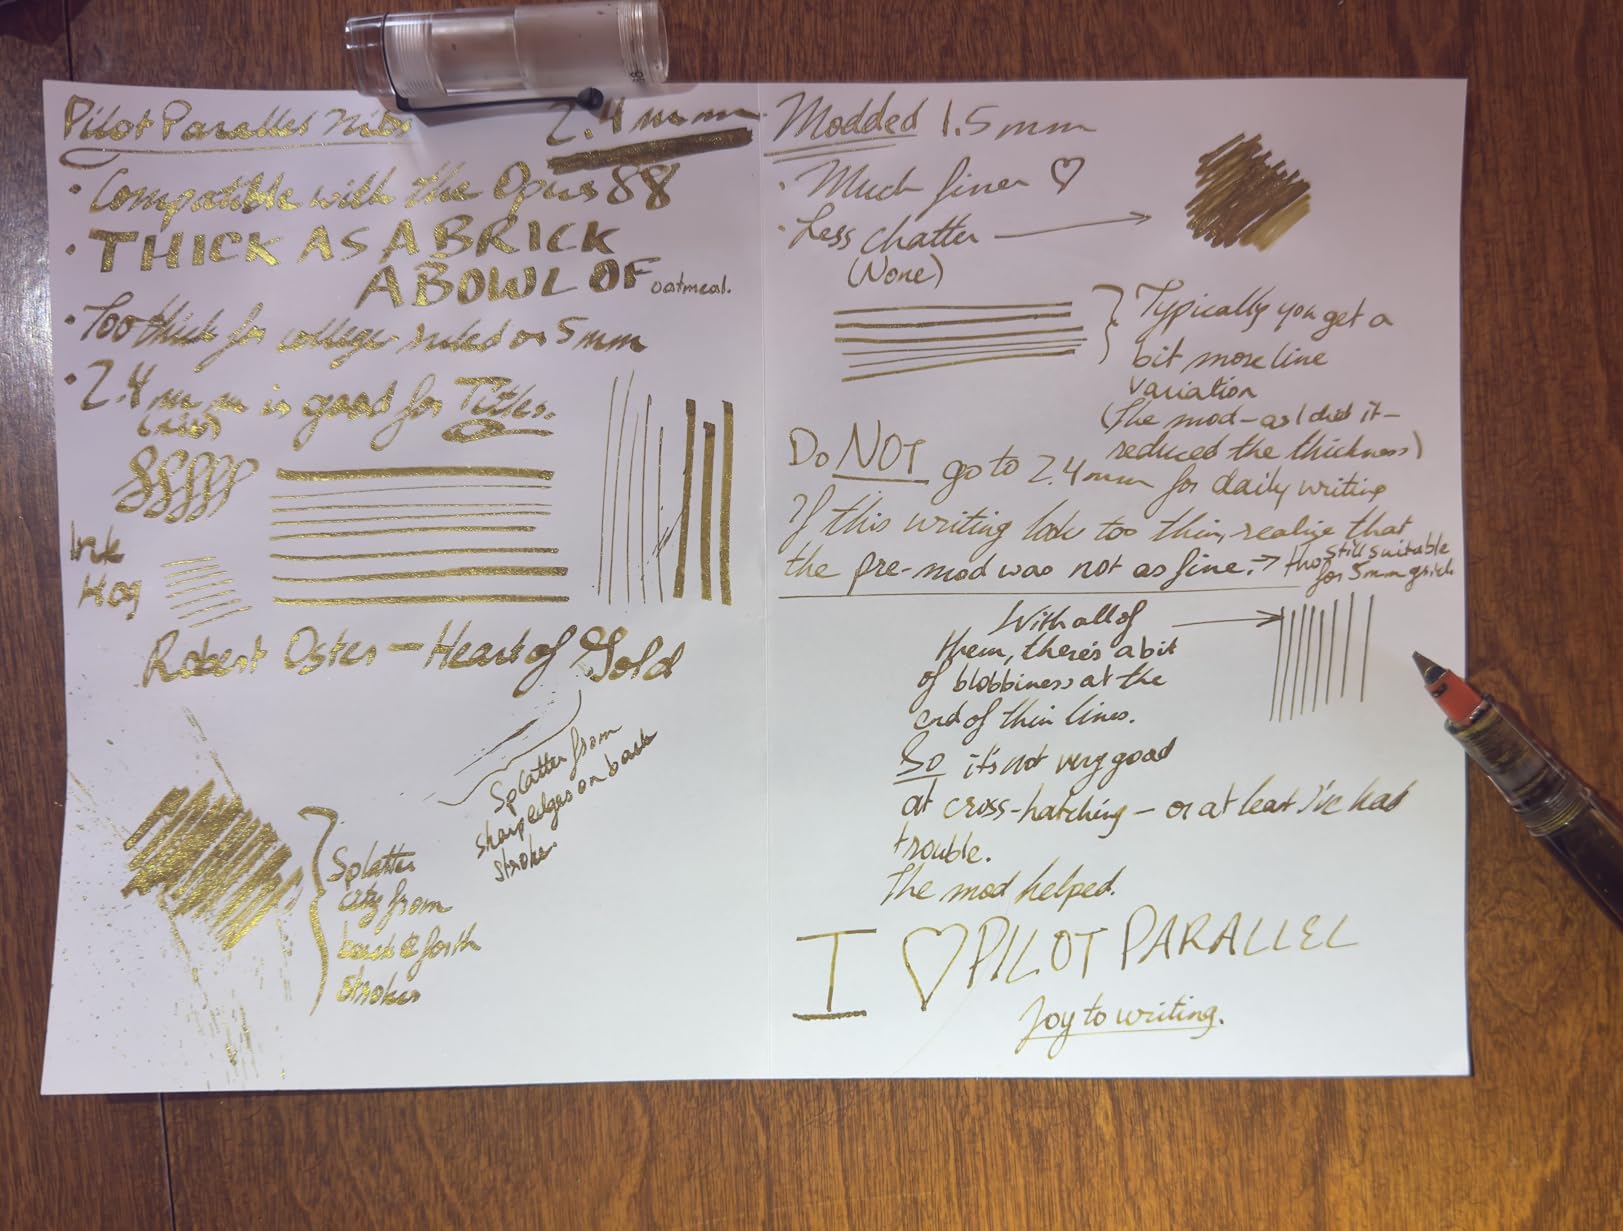 Pilot Parallel Nibs
2.4 mm
• Compatible with the Opus 88
• THICK AS A BRICK
A BOWL OF oatmeal.
• Too thick for college ruled or 5 mm
• 2.4 mm is good for Titles.
Ink
Hog
Robert Oster – Heart of Gold
Splatter from
sharp edges on back
stroke.
Splatter
city from
back & forth
strokes
Modded 1.5 mm
• Much finer ♡
• Less chatter →
(None)
Typically you get a
bit more line
variation
(The mod – as I did it –
reduced the thickness)
Do NOT go to 2.4mm for daily writing
If this writing looks too thin, realize that
the pre-mod was not as fine. → tho still suitable
for 5mm grid
With all of →
them, there's a bit
of blobbiness at the
end of thin lines.
So it's not very good
at cross-hatching – or at least I've had
trouble.
The mod helped.
I ♡ PILOT PARALLEL
Joy to writing.